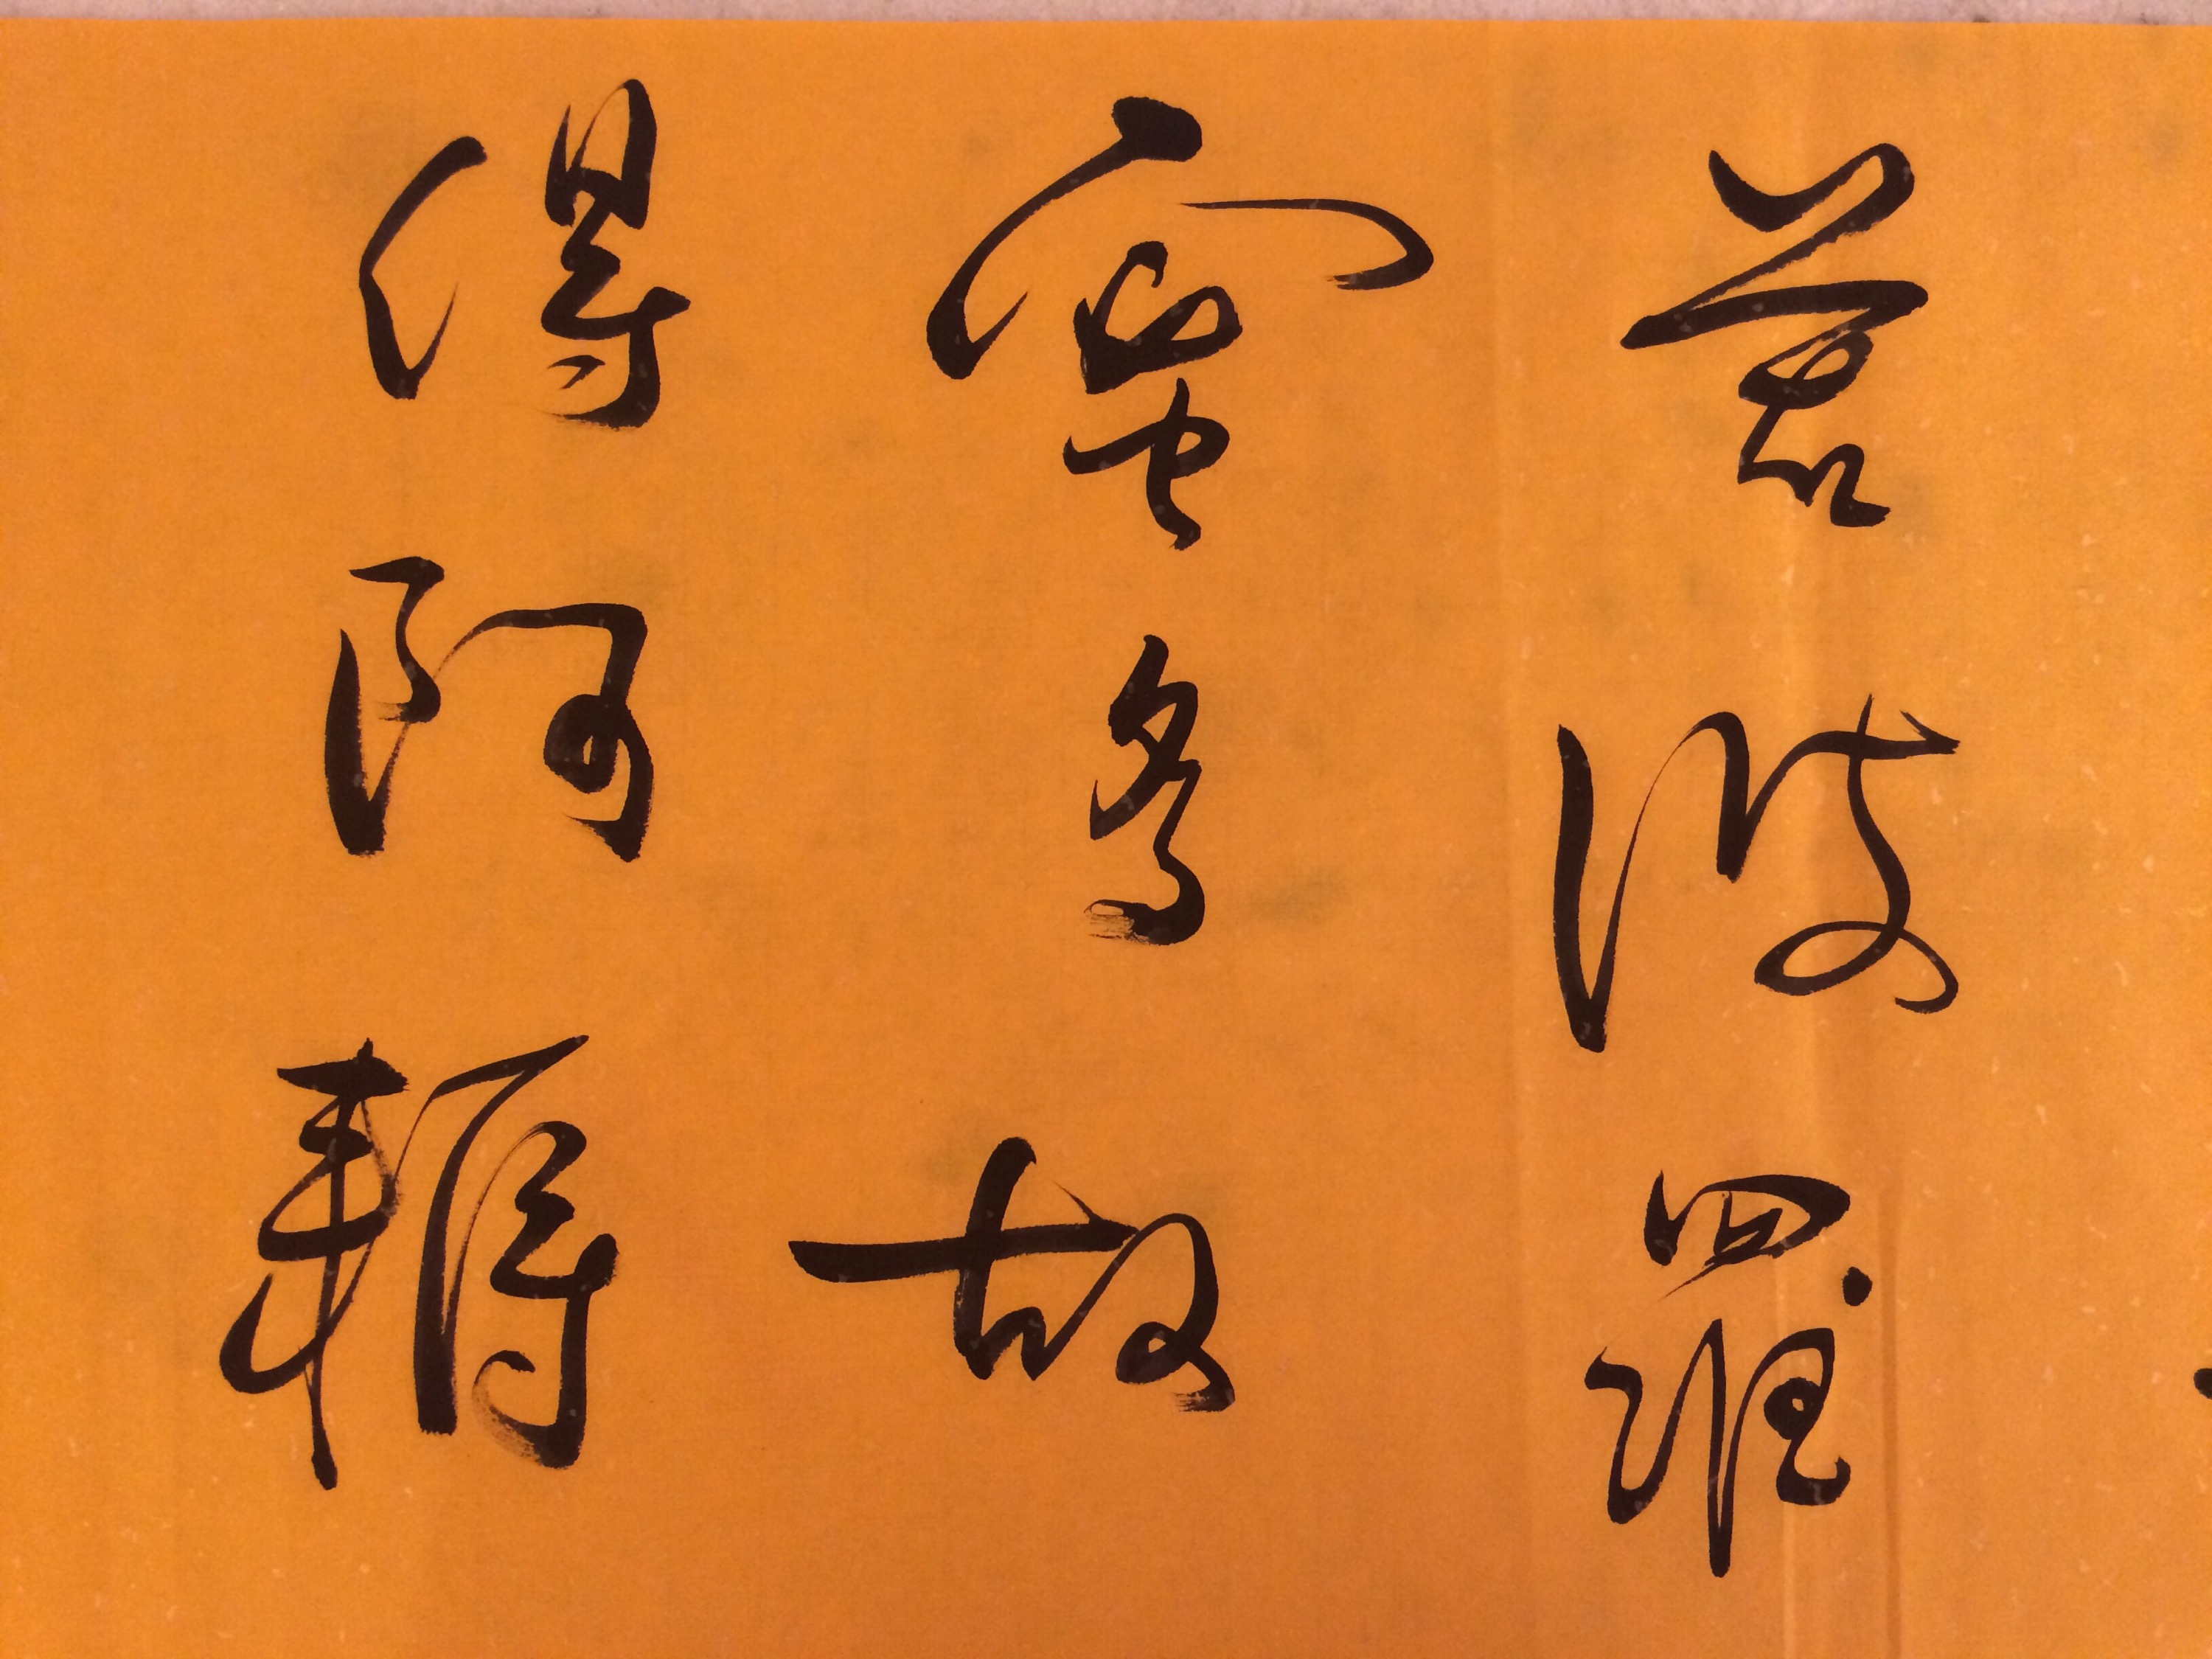 若波羅
蜜多故
得阿耨